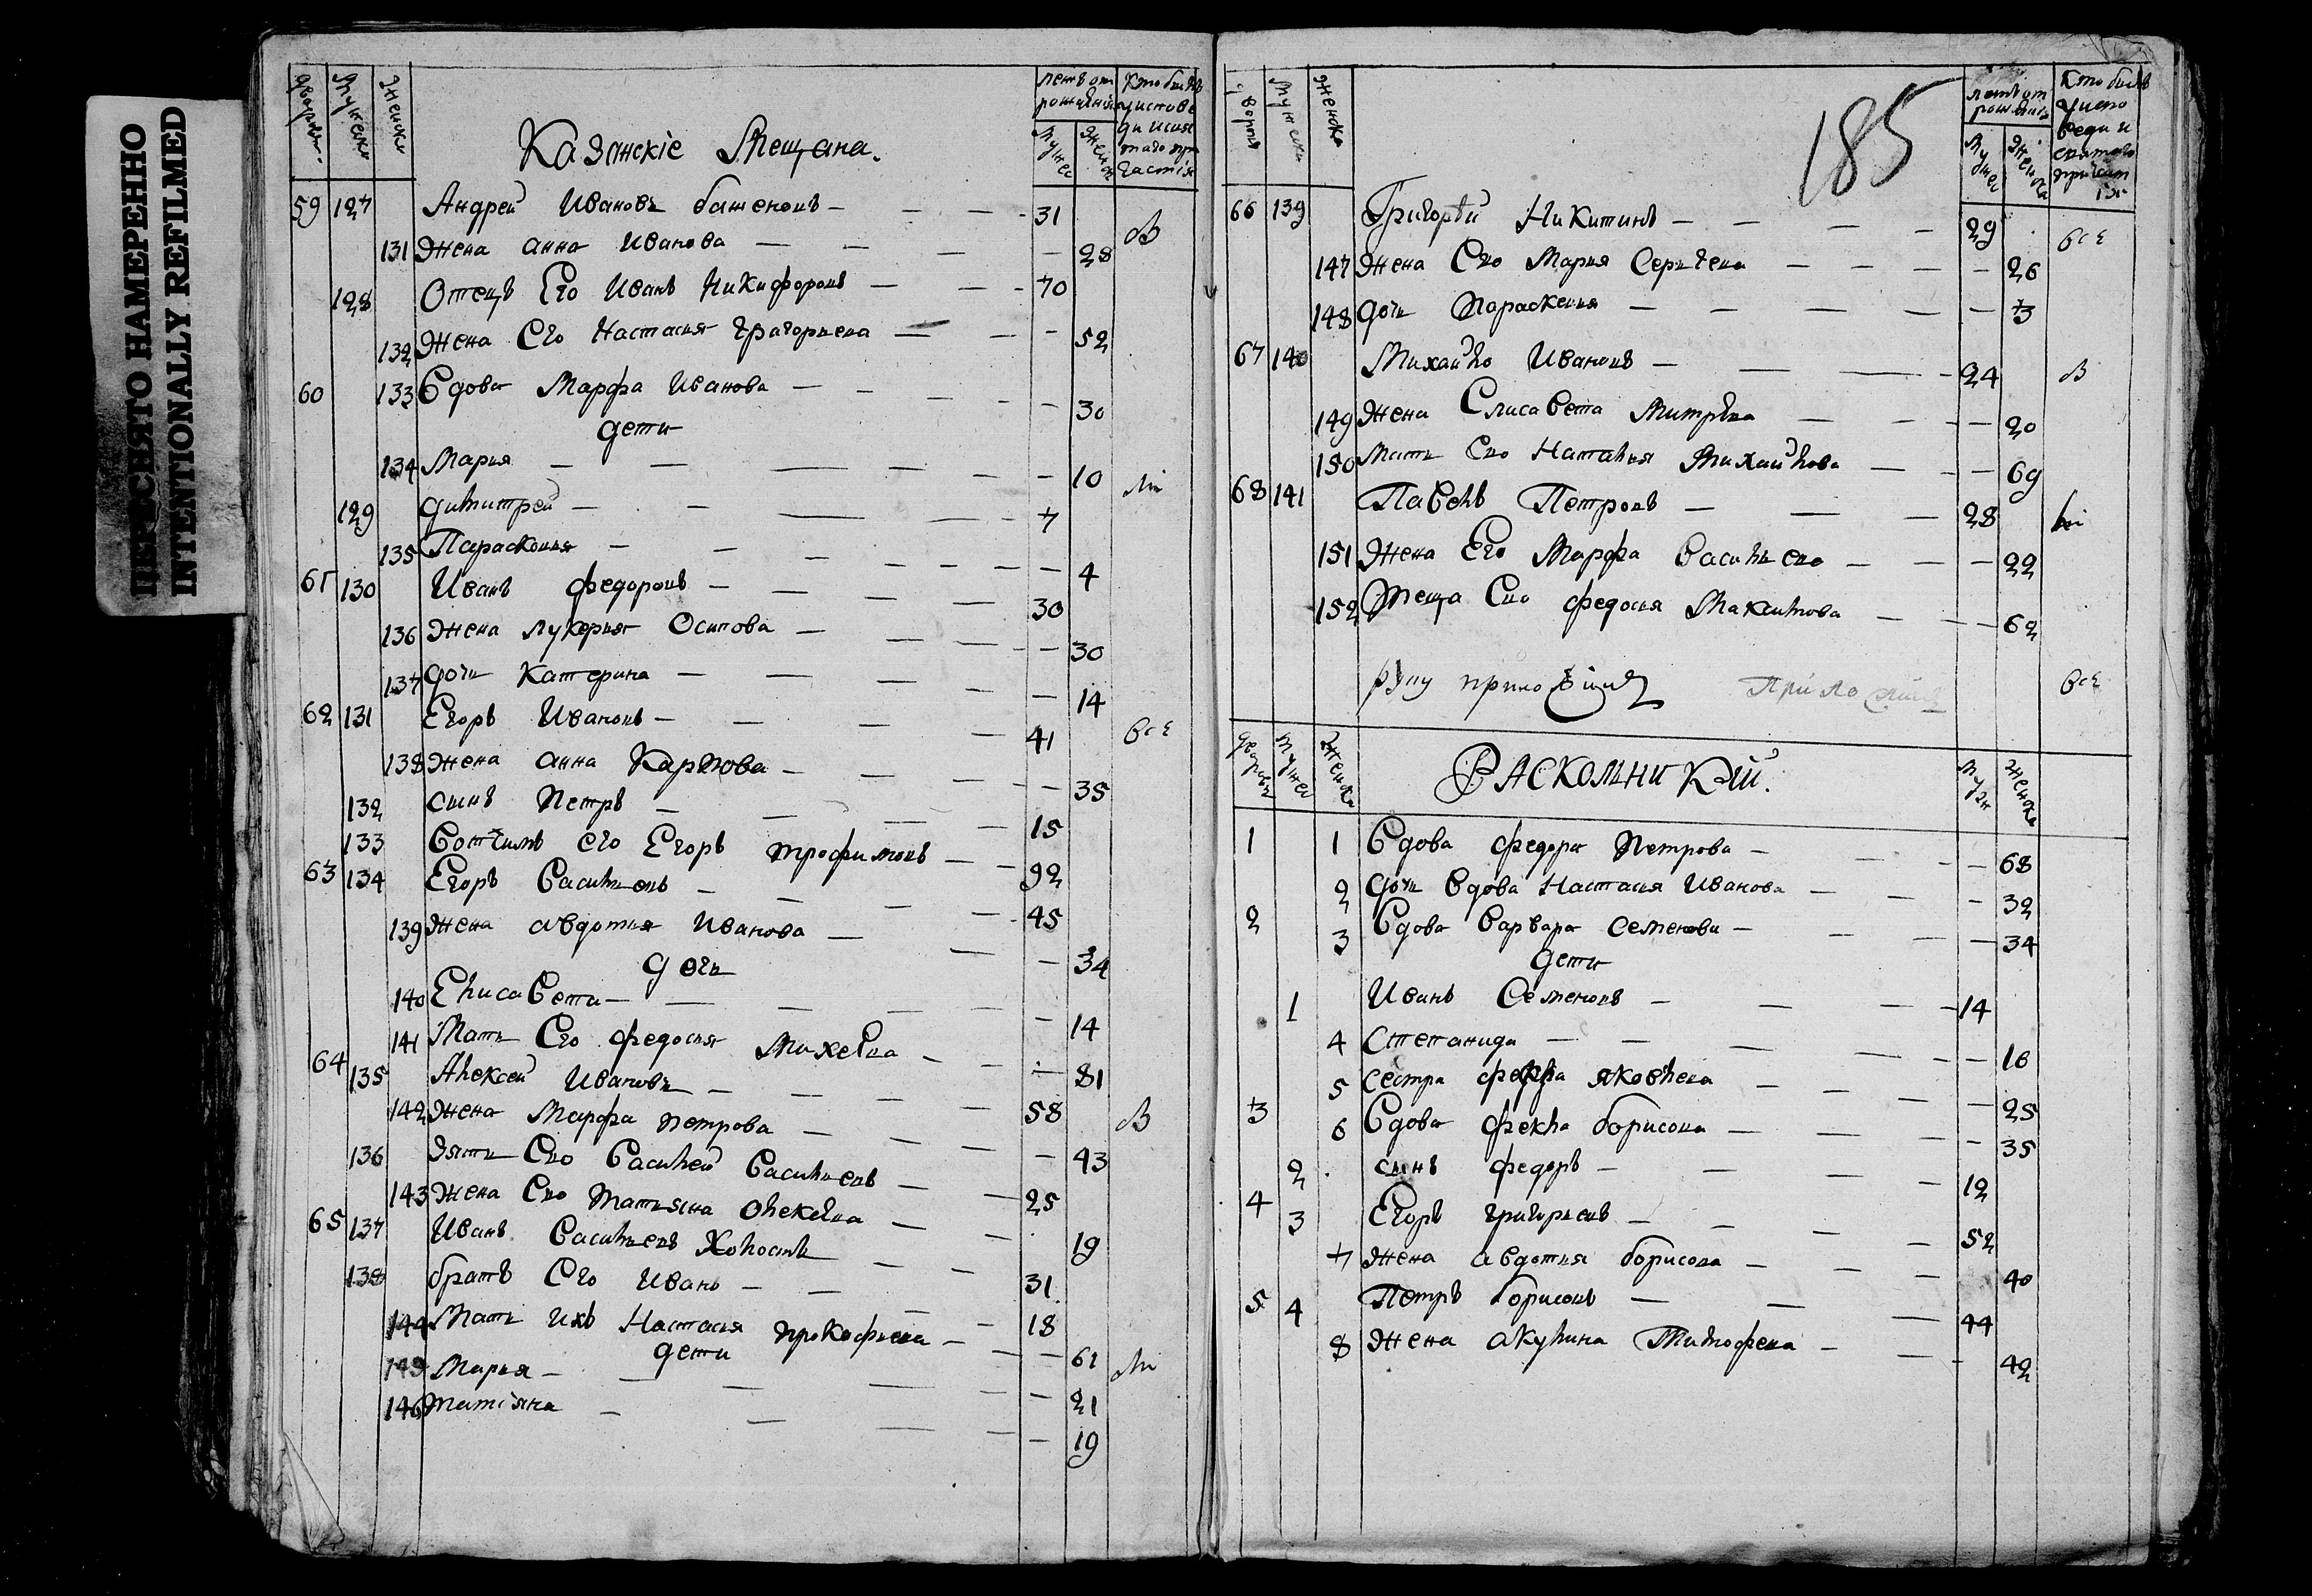 ПЕРЕСНЯТО НАМЕРЕННО
INTENTIONALLY REFILMED
дворовъ Мужеска Женска лѣтъ от рожденія Мужес Женск Кто былъ у исповеди и святаго причастія
Казанскіе Мещана.
59 127 Андрей Ивановъ 31 В
131 Жена анна Иванова 28
128 Отецъ Его Иванъ Никифоровъ 70
132 Жена Его Настасия Григорьева 52
60 133 Вдова Марфа Иванова 30
дети
134 Марья 10
129 Димитрей 7
135 Парасковия 4
61 130 Иванъ федоровъ 30
136 Жена лукерия Осипова 30
137 дочь Катерина 14
62 131 Егоръ Ивановъ 41 все
138 Жена анна Карпова 35
132 сынъ Петръ 15
133 Вотчимъ его Егоръ трофимовъ 92
63 134 Егоръ Васильевъ 45
139 Жена авдотия Иванова 34
дочь
140 Елисавета 14
141 Мать Его федосия Михеева 81
64 135 Алексей Ивановъ 58 В
142 Жена Марфа петрова 43
136 Зять Его Василей Васильевъ 25
143 Жена Его татьяна Алексеева 19
65 137 Иванъ Васильевъ Холостъ 31
138 братъ Его Иванъ 18
144 Мать ихъ Настасия прокофьева 61
дети
145 Марья 21
146 татьяна 19
185
дворов Мужеска Женска лѣтъ от рожденія Мужес Женска Кто былъ у исповеди и святаго причастія
66 139 Григорѣй Никитинъ 29 все
147 Жена Его Мария Сергеева 26
148 дочь Параскевия 3
67 140 Михайло Ивановъ 24 В
149 Жена Елисавета Митрева 20
150 Мать Его Наталия Михайлова 69
68 141 Павелъ Петровъ 28
151 Жена Его Марфа Васильева 22
152 Теща Его федосия Максимова 62
руку приложилъ все
дворовъ Мужес Женска РАСКОЛЬНИКИ. Муж Женска
1 1 Вдова федора петрова 68
2 дочь вдова Настасия Иванова 32
2 3 Вдова варвара семенова 34
дети
1 Иванъ Семеновъ 14
4 Степанида 10
5 сестра яковлева 25
3 6 Вдова фекла борисова 35
2 сынъ федоръ 12
4 3 Егоръ григорьевъ 52
7 Жена авдотия борисова 40
5 4 Петръ борисовъ 44
8 Жена акулина Тимофеева 42